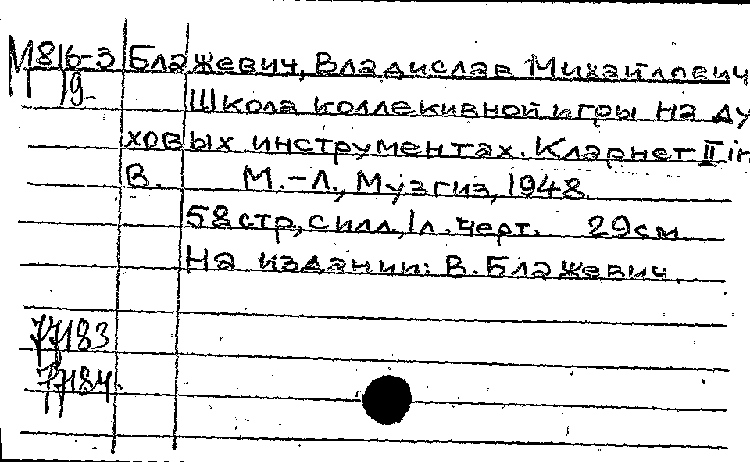 М816-3 Блажевич, Владислав Михайлович
19 Школа коллекивной игры на ду
ховых инструментах. Кларнет II in
В. М.-Л., Музгиз, 1948
58стр, силл, 1л. черт. 29см
На издании: В. Блажевич.
77183
77184